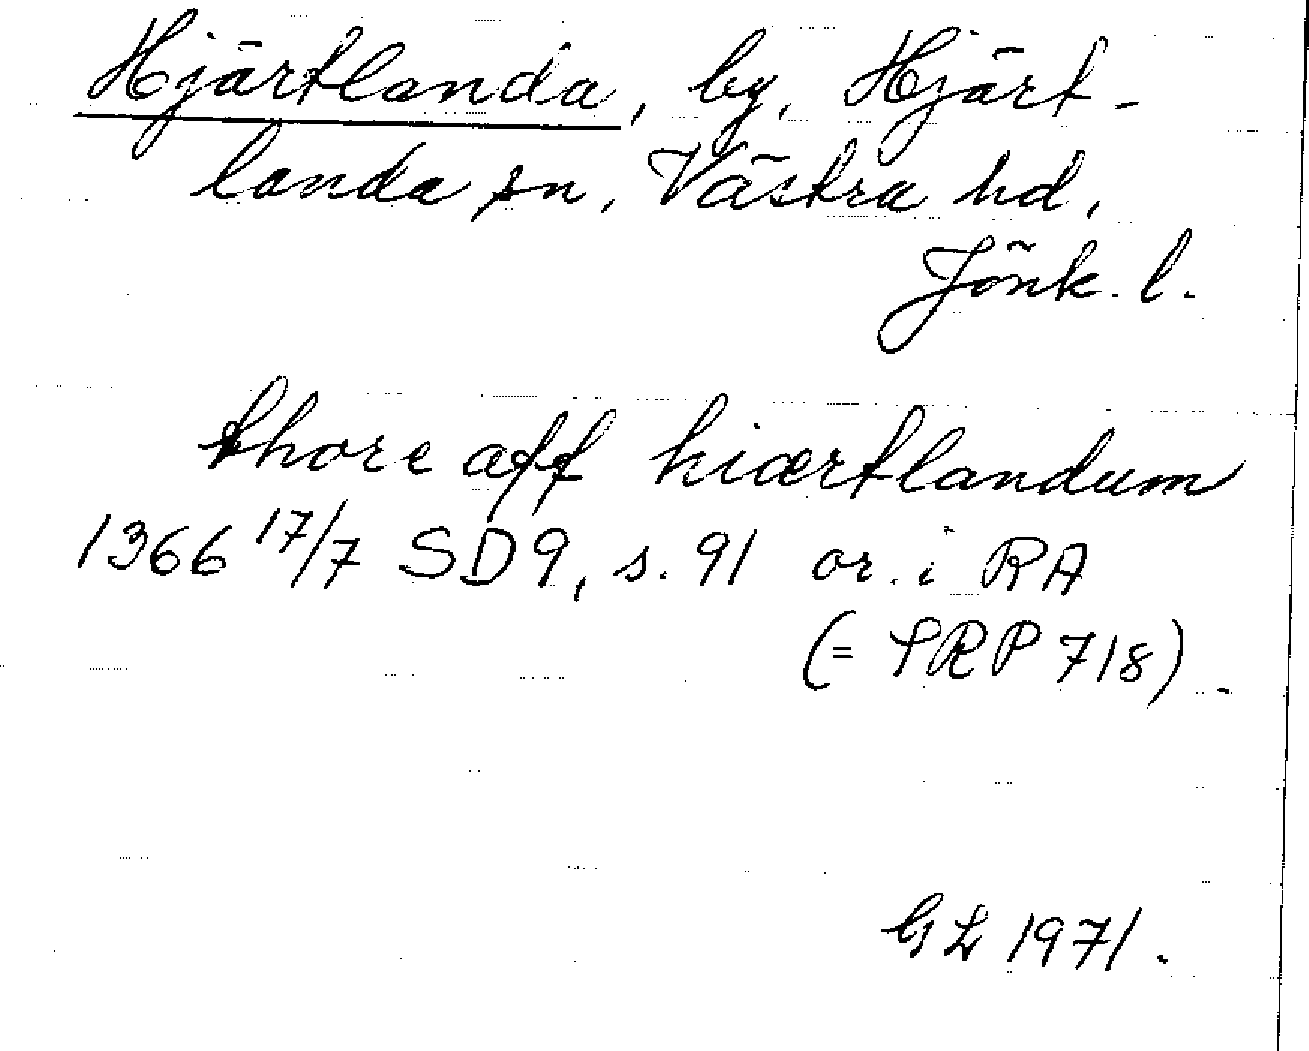 Hjärtlanda, by, Hjärt-
landa sn, Västra hd,
Jönk. l.
thore aff hiærtlandum
1366 17/7 SD9, s. 91 or. i RA
(= SRP 718).
GL 1971.